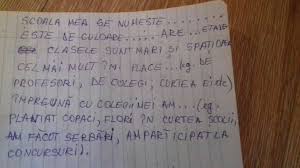 SCOALA MEA SE NUMEȘTE........
ESTE DE CULOARE.......ARE...ETAJE
CLASELE SUNT MARI SI SPATIOASE
CEL MAI MULT ÎMI PLACE...(eg. DE
PROFESORI, DE COLEGI, CURTEA Etc)
ÎMPREUNĂ CU COLEGII NEI AM...(eg.
PLANTAT COPACI, FLORI ÎN CURTEA SCOLII,
AM FĂCUT SERBĂRI, AM PARTICIPAT LA
CONCURSURI).